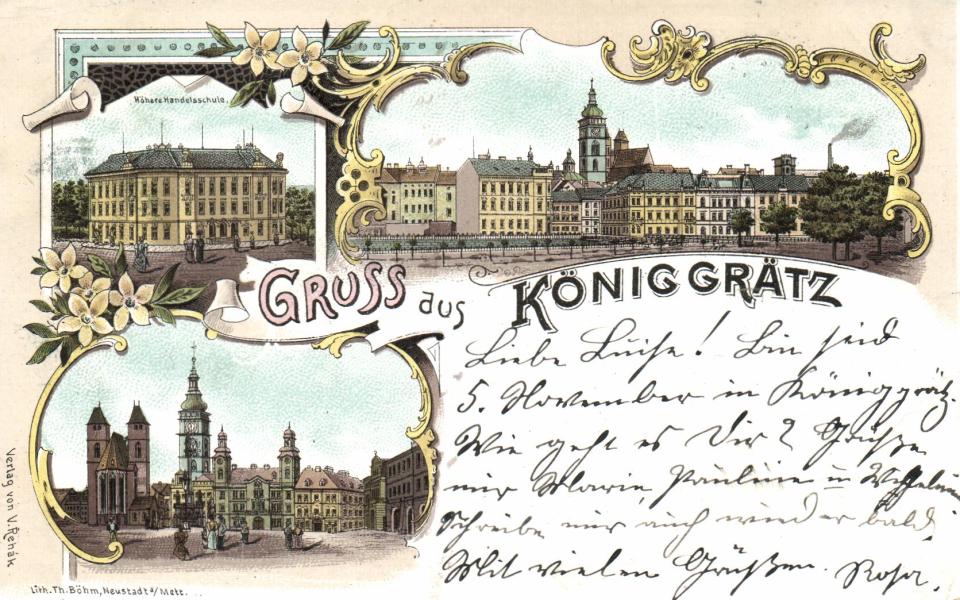 Höhere Handelsschule.
GRUSS aus KÖNIGGRÄTZ
Liebe Luise! Bin seid
5. November in Königgrätz.
Wie geht es Dir? Grüße
mir Marie, Pauline u Wilhelmin
Schreibe mir auch wieder bald.
Mit vielen Grüßen. Rosa.
Verlag von V. Řehák
Lith. Th. Böhm, Neustadt a/ Mett.